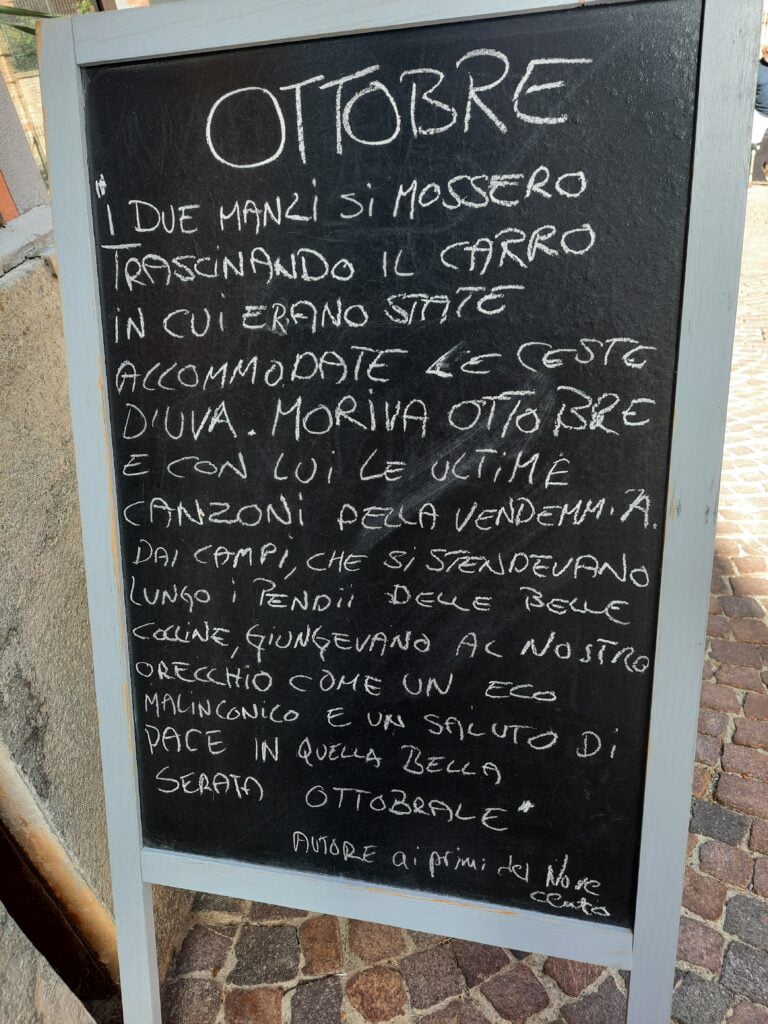 OTTOBRE
"I DUE MANZI SI MOSSERO
TRASCINANDO IL CARRO
IN CUI ERANO STATE
ACCOMMODATE LE CESTE
D'UVA. MORIVA OTTOBRE
E CON LUI LE ULTIME
CANZONI DELLA VENDEMMIA.
DAI CAMPI, CHE SI STENDEVANO
LUNGO I PENDII DELLE BELLE
COLLINE, GIUNGEVANO AL NOSTRO
ORECCHIO COME UN ECO
MALINCONICO E UN SALUTO DI
PACE IN QUELLA BELLA
SERATA OTTOBRALE"
AUTORE ai primi del Nove
cento